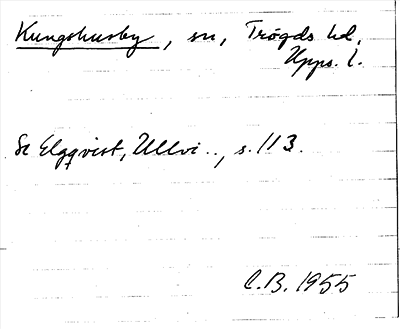 Kungshusby, sn, Trögds hd,
Upps. l.
Se Elgqvist, Ullvi.., s. 113.
C.B. 1955